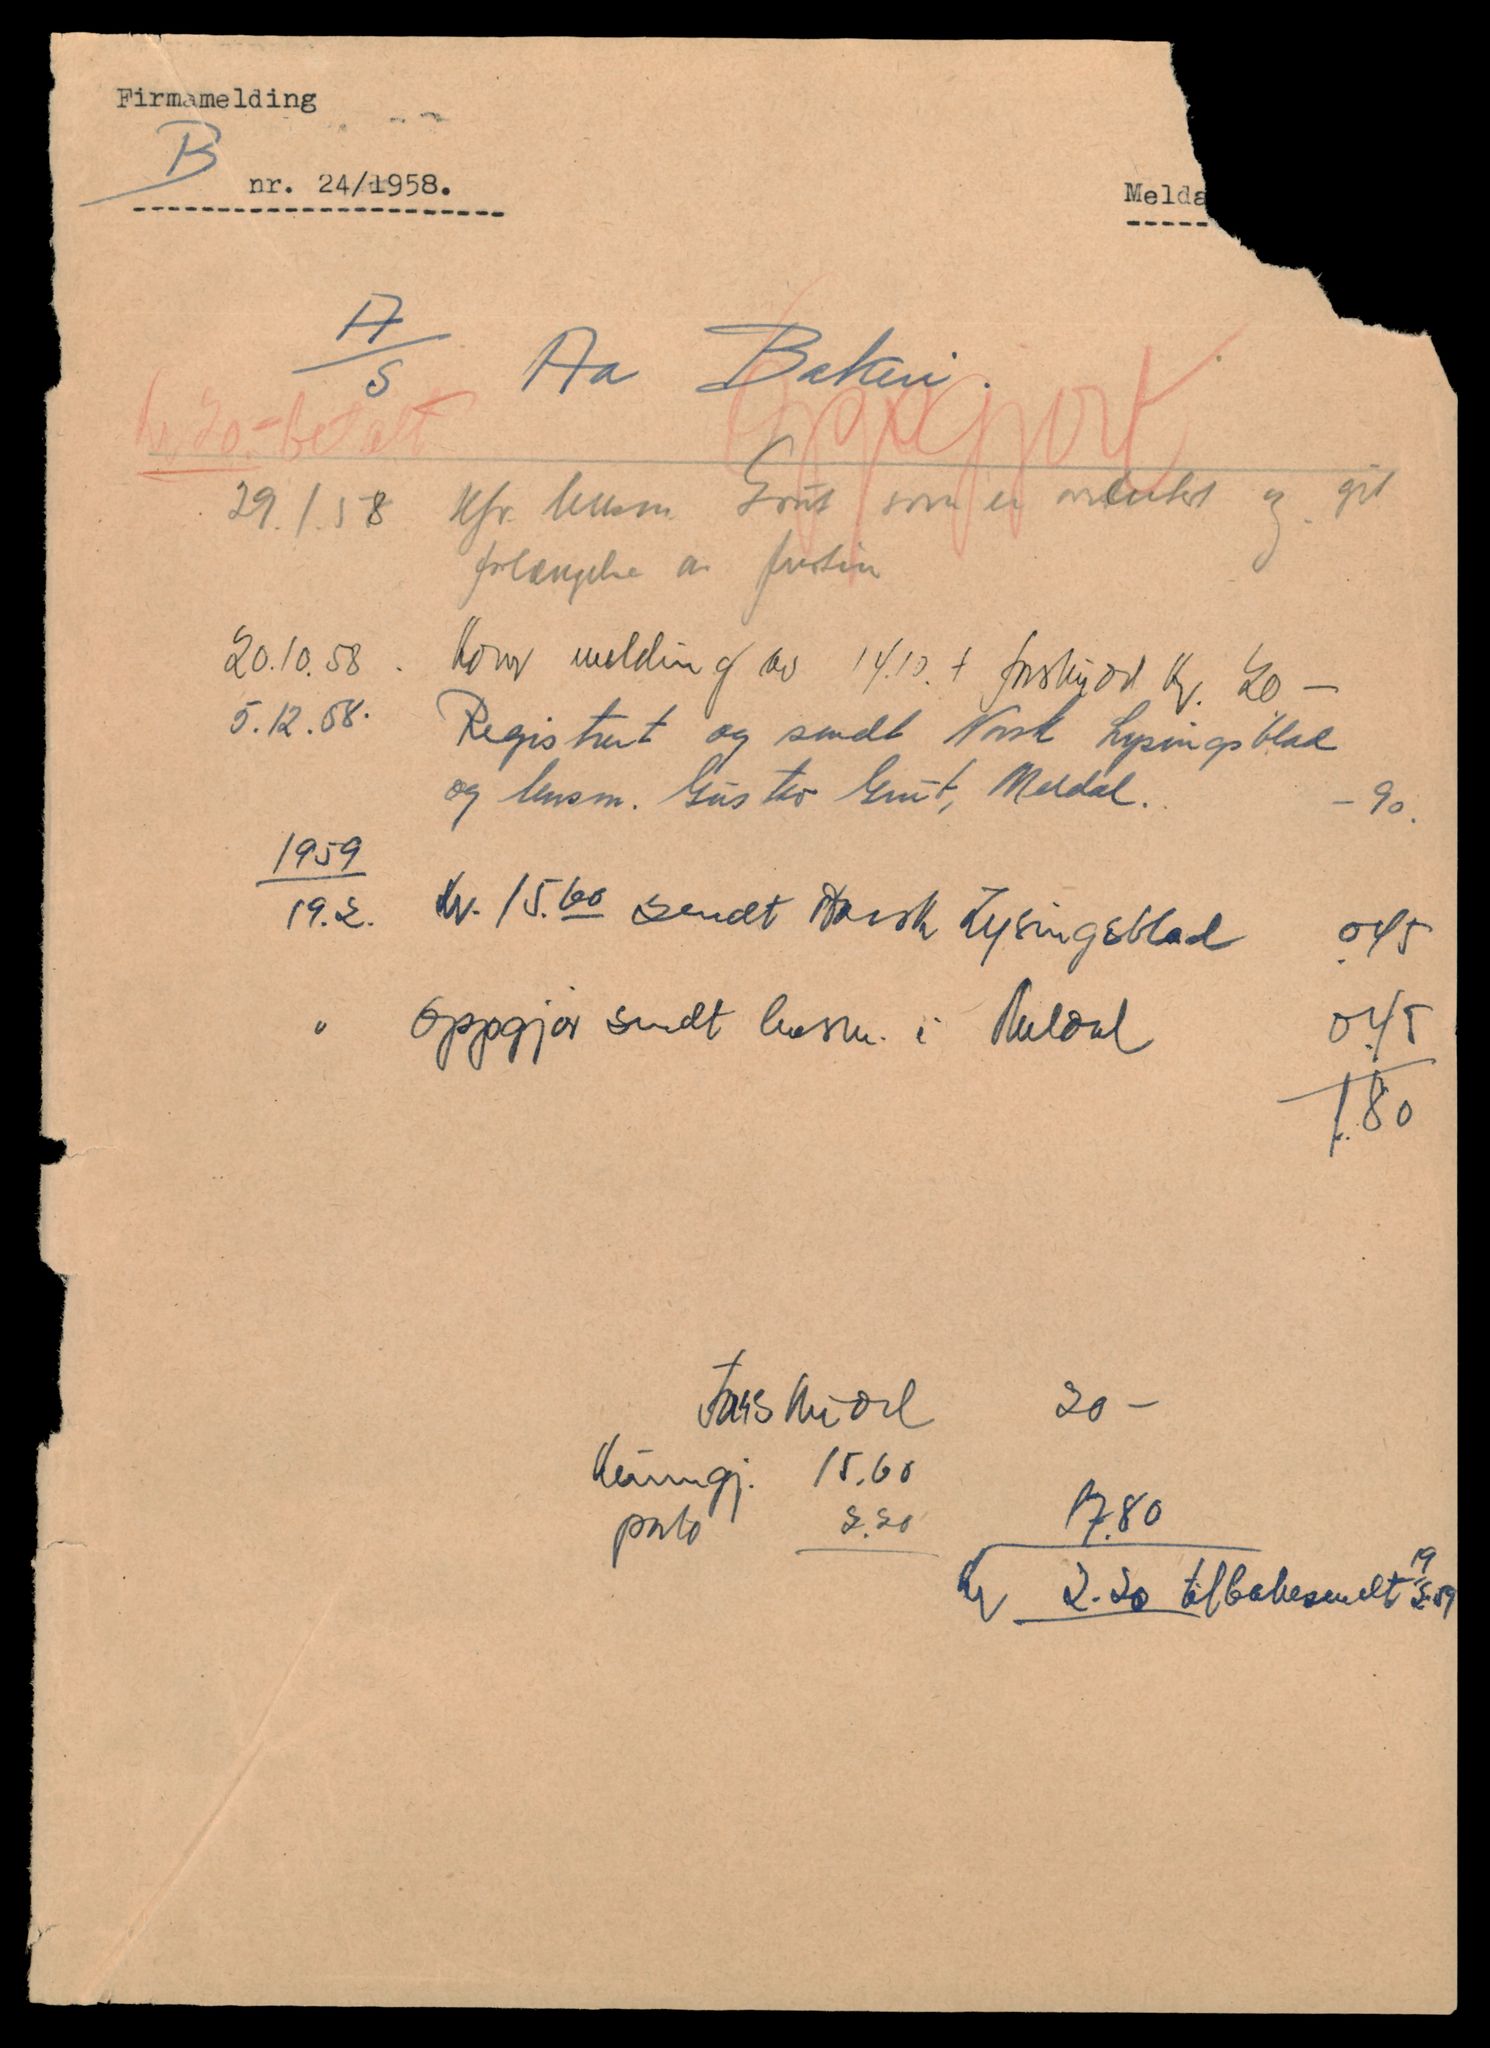 Firmamelding
B nr. 24/1958.
Melda
A/S Aa Bakeri.
kr. 20- betalt
Oppgjort
29.1.58 Kfr. lensm. Grut som er og gitt
forlængelse av fristen
20.10.58. Kom melding av 14.10. + forskudd kr. 20 -
5.12.58. Registrert og sendt Norsk Lysingsblad
og lensm. Gustav Grut, Meldal. - 90.
1959
19.2. Kr. 15.60 sendt Norsk Lysingsblad 0.45
" Oppgjør sendt lensm. i Meldal 0.45
1.80
Forskudd 20 -
Kunngj. 15.60
porto 2.20 17.80
Kr 2.20 tilbakesendt 19/2-59